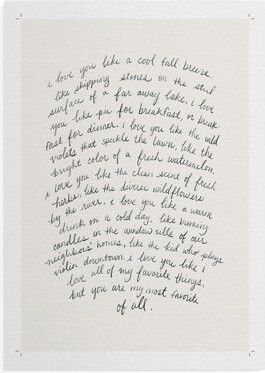 i love you like a cool fall breeze
like skipping stones on the still
surface of a far away lake. i love
you like pie for breakfast, or break
fast for dinner. i love you like the wild
violets that speckle the lawn, like the
bright color of a fresh watermelon.
i love you like the clean scent of fresh
herbs, like the diverse wildflowers
by the river. i love you like a warm
drink on a cold day, like burning
candles in the window sills of our
neighbors' homes, like the kid who plays
violin downtown. i love you like i
love all of my favorite things,
but you are my most favorite
of all.